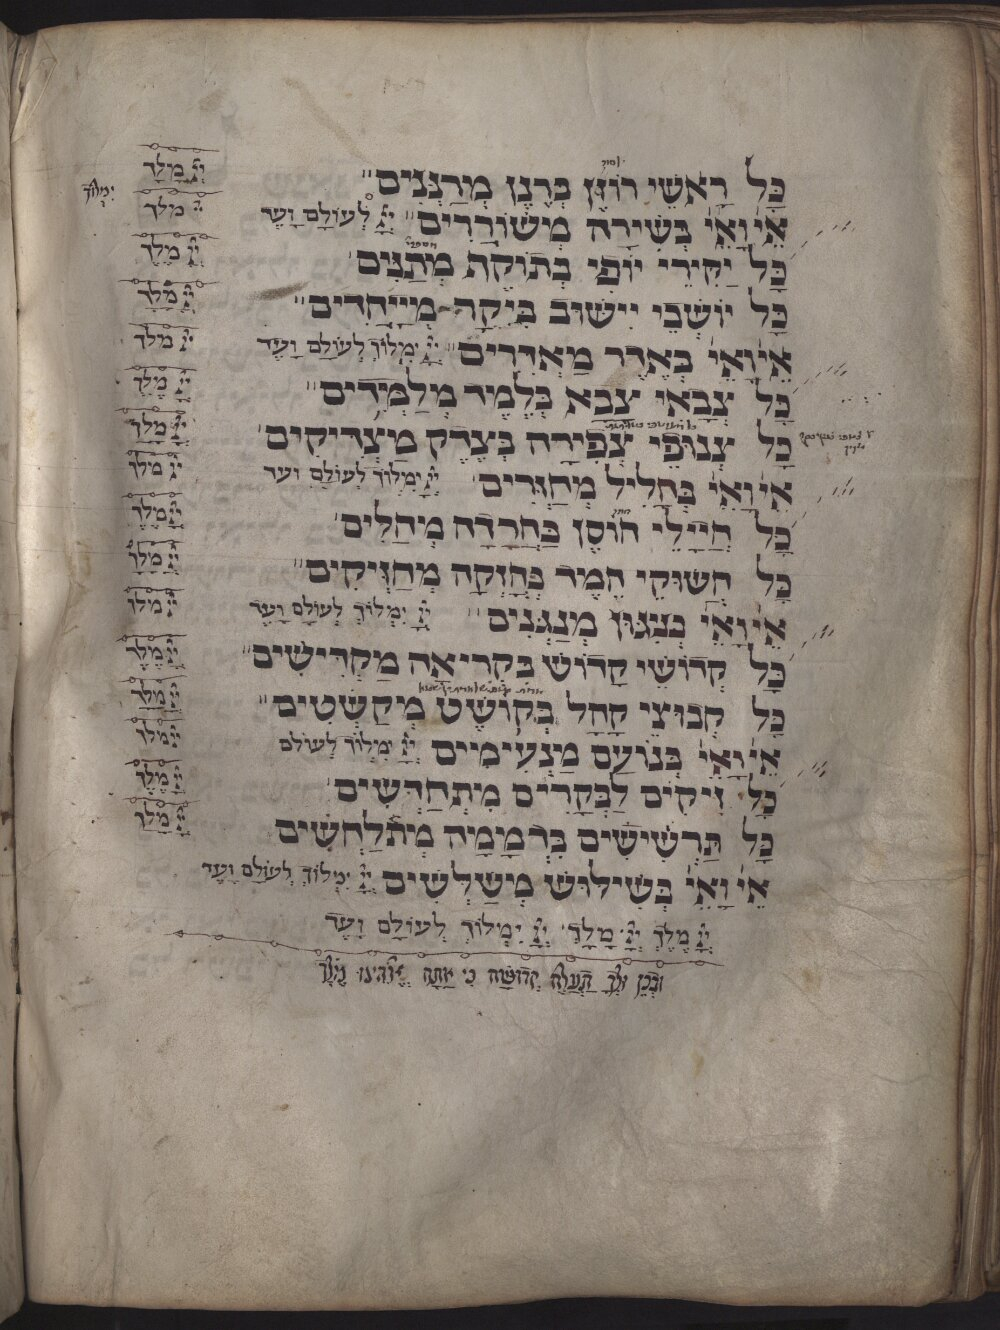 כָּל רָאשֵׁי רוֹזֶן בְּרֶנֶן מְרַנְּנִים יְיָ מָלָךְ
אֵי וָאֵי בְּשִׁירָה מְשׁוֹרְרִים יְיָ לְעוֹלָם וָעֶד יְיָ מלך ימלוך
כָּל יַקִּירֵי יוֹפִי בְּתוֹקֶף מְתַנִּים יְיָ מֶלֶךְ
כָּל יוֹשְׁבֵי יִישּׁוּב בְּיִקָּה מְיַיחֲדִים יְיָ מָלָךְ
אֵי וָאֵי בְּאֶדֶר מַאְדִּרִים יְיָ יִמְלוֹךְ לְעוֹלָם וָעֶד יְיָ מלך
כָּל צִבְאֵי צָבָא בְּלֶמֶד מְלַמְּדִים יְיָ מֶלֶךְ
כָּל צְנוּפֵי צְפִירָה בְּצֶדֶק מַצְדִּיקִים יְיָ מָלָךְ
אֵי וָאֵי בְּחָלִיל מְחַגְּרִים יְיָ יִמְלוֹךְ לְעוֹלָם ועד יְיָ מלך
כָּל חַיָּילֵי חוֹסֶן בַּחֲרָדָה מְחַלִּים יְיָ מֶלֶךְ
כָּל חֲשׁוּקֵי חֶמֶד בְּחָזְקָה מְחַזְּקִים יְיָ מָלָךְ
אֵי וָאֵי בְּנִיגּוּן מְנַגְּנִים יְיָ יִמְלוֹךְ לְעוֹלָם וָעֶד יְיָ מלוך
כָּל קְדוֹשֵׁי קָדוֹשׁ בִּקְרִיאָה מַקְדִּישִׁים יְיָ מֶלֶךְ
כָּל קְבוּצֵי קָהָל בְּקוֹשֶׁט מְקַשְּׁטִים יְיָ מָלָךְ
אֵי וָאֵי בְּנוֹעַם מַנְעִימִים יְיָ יִמְלוֹךְ לְעוֹלָם יְיָ מלוך
כָּל זִיקִים לַבְּקָרִים מִתְחַדְּשִׁים יְיָ מֶלֶךְ
כָּל תַּרְשִׁישִׁים בִּדְמָמָה מִתְלַחֲשִׁים יְיָ מָלָךְ
אֵי וָאֵי בְּשִׁילּוּשׁ מְשַׁלְּשִׁים יְיָ יִמְלוֹךְ לְעוֹלָם וָעֶד
יְיָ מֶלֶךְ יְיָ מָלָךְ יְיָ יִמְלוֹךְ לְעוֹלָם וָעֶד
וּבְכֵן וּלְךָ תַעֲלֶה קְדוּשָּׁה כִּי אַתָּה אֱלֹהֵינוּ מֶלֶךְ